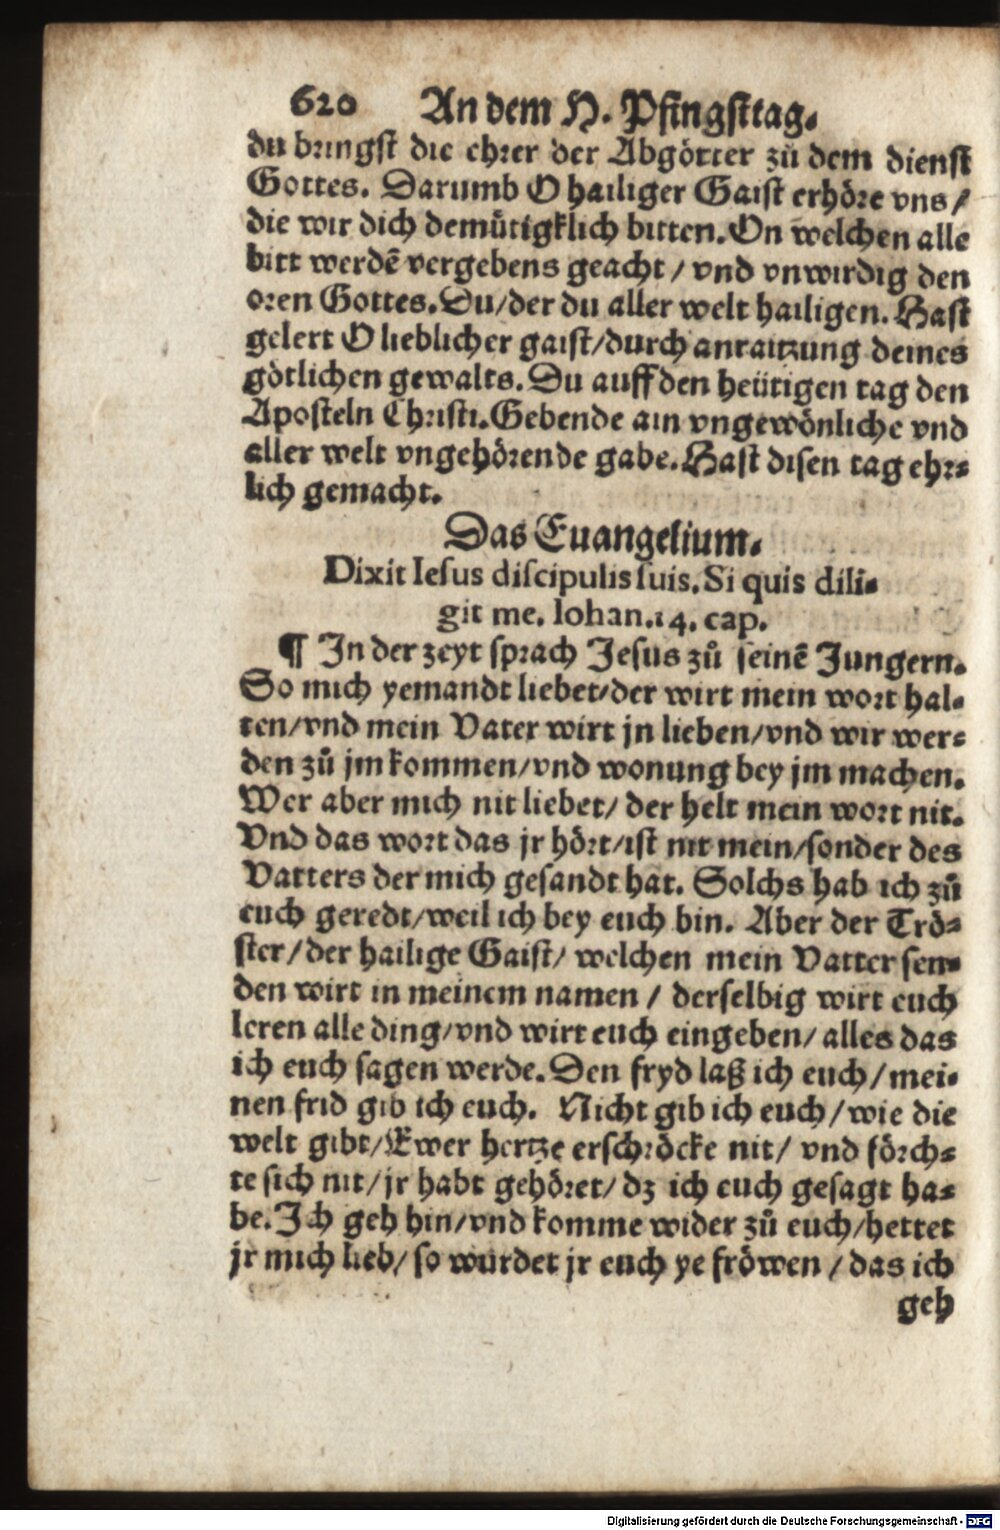 620 An dem H. Pfingsttag.
du bringst die ehrer der Abgötter zů dem dienst
Gottes. Darumb O hailiger Gaist erhöre vns /
die wir dich demůtigklich bitten. On welchen alle
bitt werdẽ vergebens geacht / vnd vnwirdig den
oren Gottes. Du/der du aller welt hailigen. Hast
gelert O lieblicher gaist/durch anraitzung deines
götlichen gewalts. Du auff den heütigen tag den
Aposteln Christi. Gebende ain vngewönliche vnd
aller welt vngehörende gabe. Hast disen tag ehr-
lich gemacht.
Das Euangelium.
Dixit Iesus discipulis suis. Si quis dili-
git me. Iohan.14. cap.
¶ In der zeyt sprach Jesus zů seinẽ Jungern.
So mich yemandt liebet/der wirt mein wort hal-
ten/vnd mein Vater wirt jn lieben/vnd wir wer-
den zů jm kommen/vnd wonung bey jm machen.
Wer aber mich nit liebet/ der helt mein wort nit.
Vnd das wort das jr hört/ist nit mein/sonder des
Vatters der mich gesandt hat. Solchs hab ich zů
euch geredt/weil ich bey euch bin. Aber der Trö-
ster/der hailige Gaist/ welchen mein Vatter sen-
den wirt in meinem namen / derselbig wirt euch
leren alle ding/vnd wirt euch eingeben/ alles das
ich euch sagen werde. Den fryd laß ich euch/mei-
nen frid gib ich euch. Nicht gib ich euch/wie die
welt gibt/Ewer hertze erschröcke nit/ vnd förch-
te sich nit/jr habt gehöret/dz ich euch gesagt ha-
be. Ich geh hin/vnd komme wider zů euch/hettet
jr mich lieb/ so wurdet jr euch ye fröwen /das ich
geh
Digitalisierung gefördert durch die Deutsche Forschungsgemeinschaft - DFG